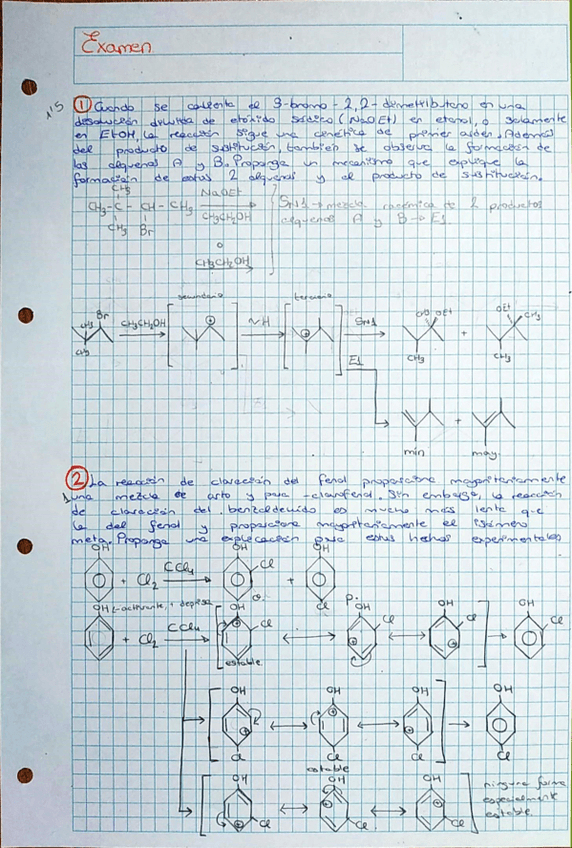 Examen
1'5
① Cuando se calienta el 3-bromo-2,2-dimetilbutano en una
disolución diluida de etóxido sódico (NaOEt) en etanol, o solamente
en EtOH, la reacción sigue una cinética de primer orden. Además
del producto de sustitución, también se observa la formación de
los alquenos A y B. Proponga un mecanismo que explique la
formación de estos 2 alquenos y el producto de sustitución.
CH3
CH3-C-CH-CH3
CH3 Br
NaOEt
CH3CH2OH
o
CH3CH2OH
SN1→mezcla racémica de 2 productos
alquenos A y B→E1
secundario
terciario
Br
CH3
CH3
CH3CH2OH
~H
SN1
E1
OEt
CH3
+
OEt
CH3
CH3
+
min
may.
② La reacción de cloración del fenol proporciona mayoritariamente
1 una mezcla de orto y para-clorofenol. Sin embargo, la reacción
de cloración del benzaldehído es mucho más lenta que
la del fenol y proporciona mayoritariamente el isómero
meta. Proponga una explicación para estos hechos experimentales
OH
+ Cl2
CCl4
OH
Cl
o.
+
OH
Cl
p.
OH
+ Cl2
CCl4
OH
Cl
estable
OH
Cl
OH
Cl
OH
Cl
OH
Cl
OH
Cl
estable
OH
Cl
OH
Cl
OH
Cl
OH
Cl
OH
Cl
ninguna forma
especialmente
estable.